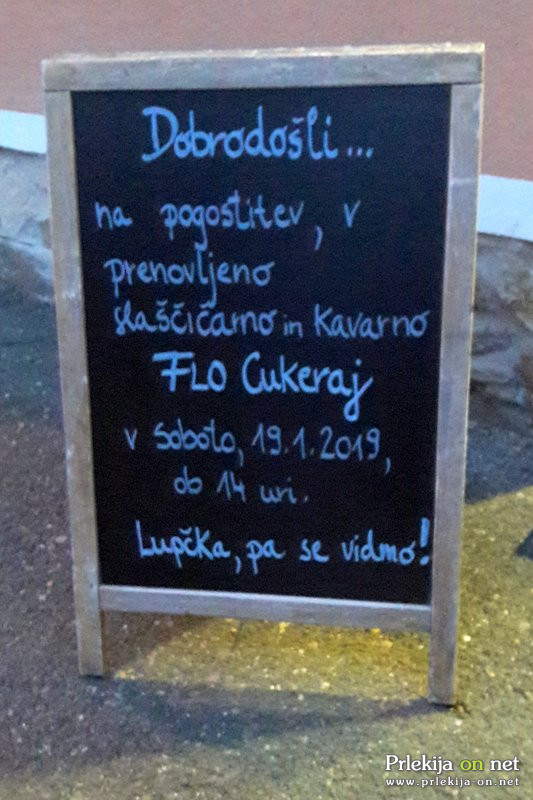 Dobrodošli...
na pogostitev, v
prenovljeno
slaščičarno in Kavarno
FLO Cukeraj
v soboto, 19.1.2019,
ob 14 uri.
Lupčka, pa se vidmo!
Prlekija on net
www.prlekija-on.net